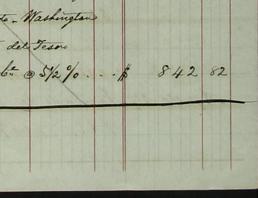 Washington
del Tesoro
@ 5 1/2 % .... $ 842 82